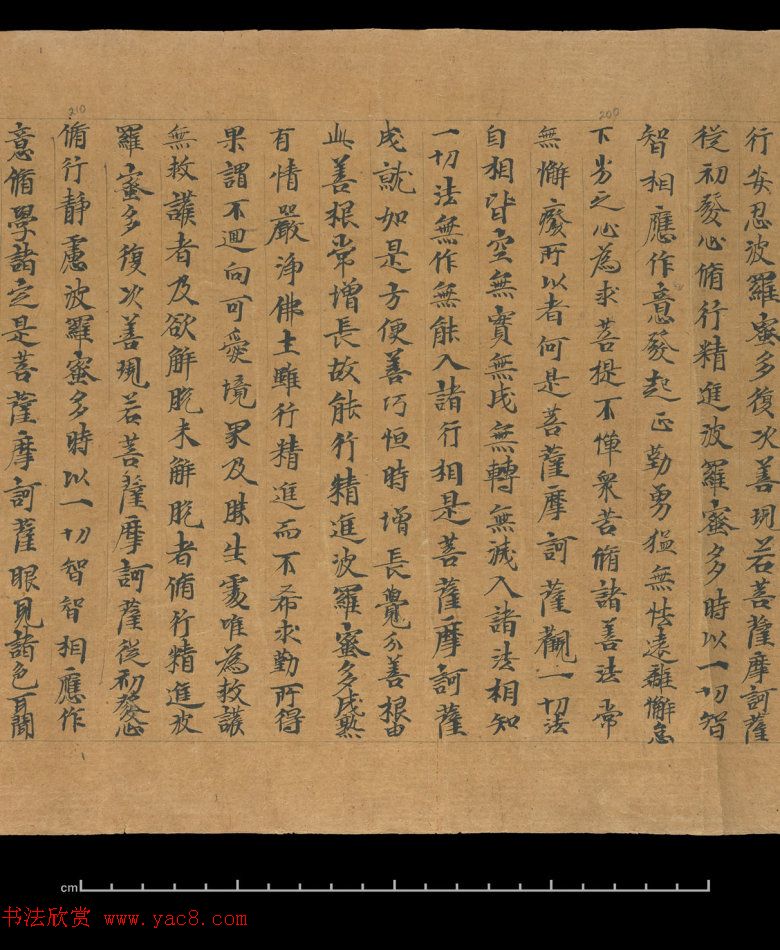 行安忍波羅蜜多復次善現若菩薩摩訶薩
從初發心脩行精進波羅蜜多時以一切智
智相應作意發起正勤勇猛無怯遠離懈怠
下劣之心為求菩提不憚衆苦脩諸善法常
無懈癈所以者何是菩薩摩訶薩觀一切法
自相皆空無實無成無轉無滅入諸法相知
一切法無作無能入諸行相是菩薩摩訶薩
成就如是方便善巧恒時增長覺分善根由
此善根常增長故能行精進波羅蜜多成熟
有情嚴淨佛土雖行精進而不希求勤所得
果謂不迴向可愛境界及勝生處唯為救護
無救護者及欲解脫未解脫者脩行精進波
羅蜜多復次善現若菩薩摩訶薩從初發心
脩行靜慮波羅蜜多時以一切智智相應作
意脩學諸定是菩薩摩訶薩眼見諸色耳聞
200
210
cm
书法欣赏 www.yac8.com